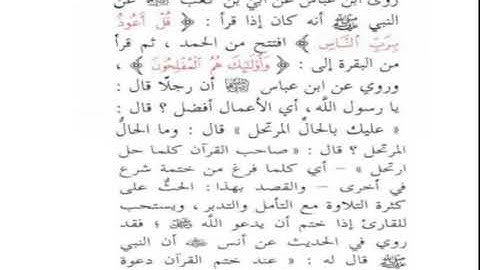 روى ابن عباس عن أبي بن كعب عن
النبي ﷺ أنه كان إذا قرأ : ﴿ قُلْ أَعُوذُ
بِرَبِّ النَّاسِ ﴾ افتتح من الحمد ، ثم قرأ
من البقرة إلى : ﴿ وَأُوْلَٰٓئِكَ هُمُ ٱلْمُفْلِحُونَ ﴾ ،
وروي عن ابن عباس أن رجلًا قال :
يا رسول اللَّه ، أي الأعمال أفضل ؟ قال :
« عليك بالحالِّ المرتحل » قال : وما الحالُّ
المرتحل ؟ قال : « صاحب القرآن كلما حل
ارتحل » – أي كلما فرغ من ختمة شرع
في أخرى – والقصد بهذا : الحثُّ على
كثرة التلاوة مع التأمل والتدبر ، ويستحب
للقارئ إذا ختم أن يدعو اللَّه ؛ فقد
روي في الحديث عن أنس أن النبي
ﷺ قال له : « عند ختم القرآن دعوة